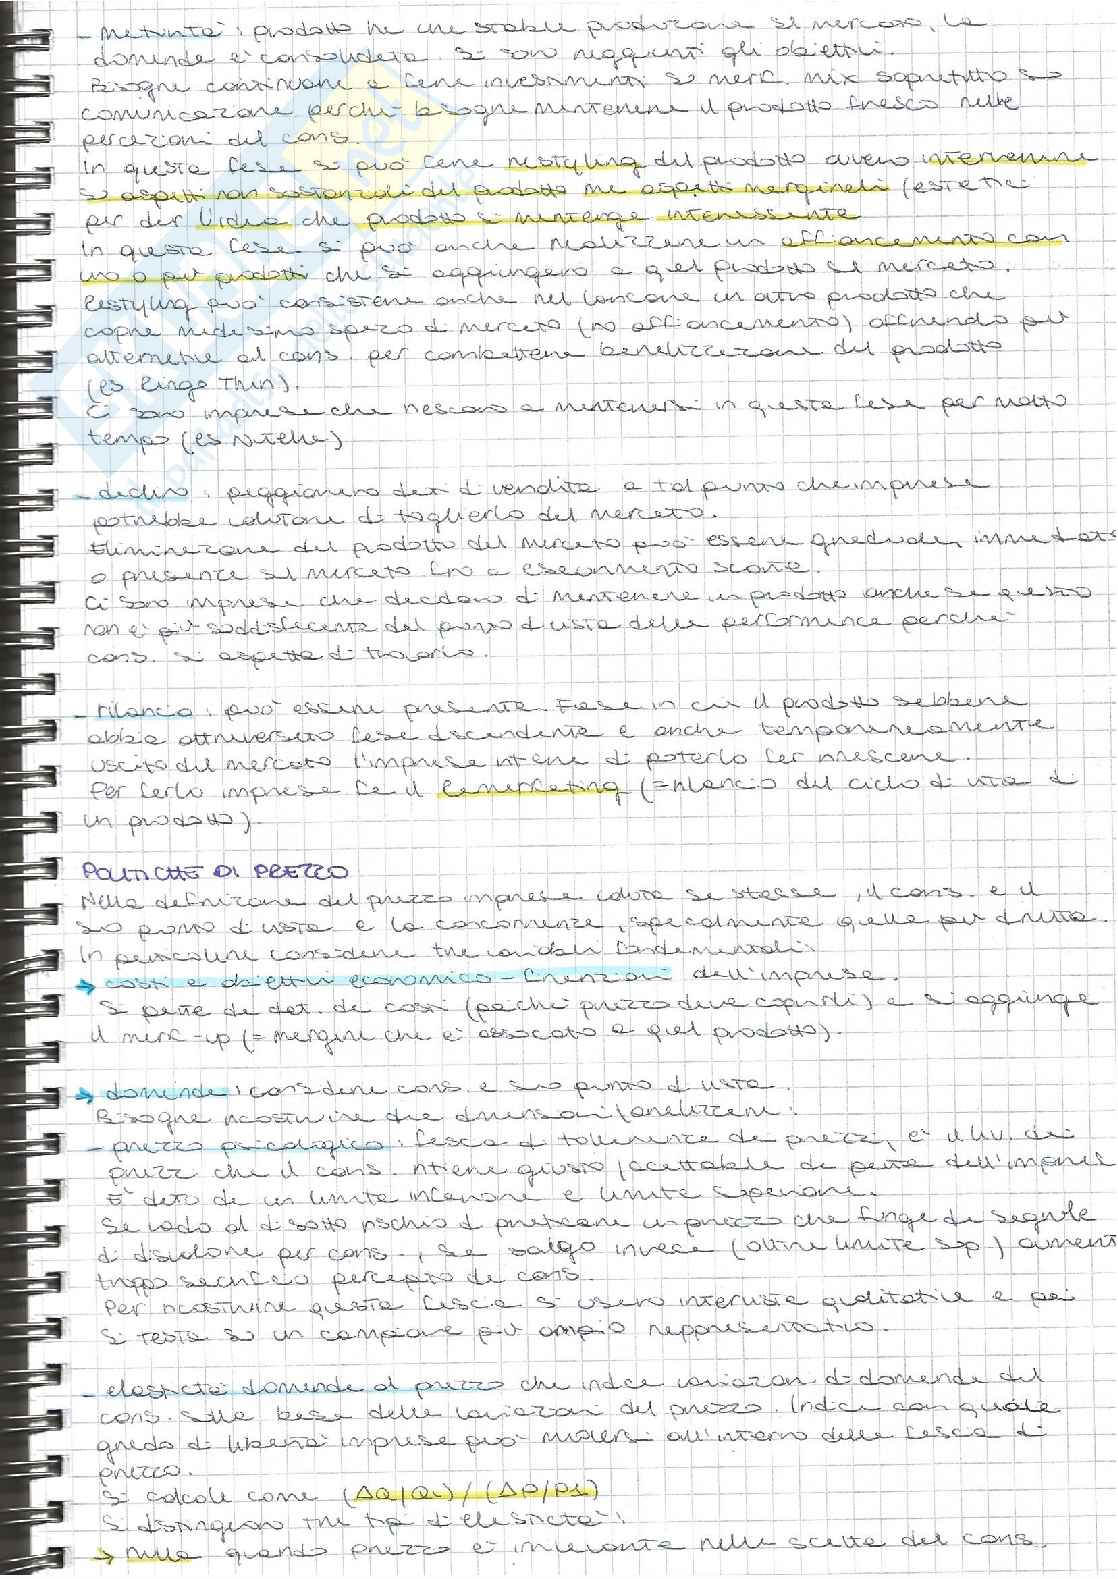 - maturità: prodotto ha una stabile produzione sul mercato, la
domanda è consolidata. Si sono raggiunti gli obiettivi.
Bisogna continuare a fare investimenti su mark. mix soprattutto su
comunicazione perchè bisogna mantenere il prodotto fresco nelle
percezioni del cons.
In questa fase si può fare restyling del prodotto ovvero intervenire
su aspetti non sostanziali del prodotto ma aspetti marginali (estetici
per dar l'idea che prodotto si mantenga interessante
In questa fase si può anche realizzare un affiancamento con
uno o più prodotti che si aggiungero a quel prodotto sul mercato.
Restyling può consistere anche nel lancare un altro prodotto che
copre medesimo spazio di mercato (no affiancamento) offrendo più
alternative al cons. per combattere banalizzazione del prodotto
(es Ringo Thin).
Ci sono imprese che riescono a mantenersi in questa fase per molto
tempo (es Nutella)
- declino: peggiorano dati di vendita a tal punto che impresa
potrebbe valutare di toglierlo dal mercato.
Eliminazione del prodotto dal mercato può essere graduale, immediata
o presenza sul mercato fino a esaurimento scorte.
Ci sono imprese che decidono di mantenere un prodotto anche se questo
non è più soddisfacente dal punto di vista della performance perchè
cons. si aspetta di trovarlo.
- rilancio: può essere presente. Fase in cui il prodotto sebbene
abbia attraversato fase discendente e anche temporaneamente
uscito dal mercato l'impresa ritiene di poterlo far rinascere.
Per farlo impresa fa il Remarketing (= rilancio del ciclo di vita di
un prodotto).
POLITICHE DI PREZZO
Nella definizione del prezzo impresa valuta se stessa, il cons. e il
suo punto di vista e la concorrenza, specialmente quella più diretta.
In particolare considera tre variabili fondamentali:
→ costi e obiettivi economico - finanziari dell'impresa.
Si parte da det. dei costi (poichè prezzo deve coprirli) e si aggiunge
il mark-up (= margine che è associato a quel prodotto).
→ domanda: considera cons. e suo punto di vista.
Bisogna ricostruire due dimensioni/analizzare:
- prezzo psicologico: fascia di tolleranza dei prezzi, è il liv. dei
prezzi che il cons. ritiene giusto/accettabile da parte dell'impres
È dato da un limite inferiore e limite superiore.
Se vado al di sotto rischio di praticare un prezzo che funge da segnale
di disvalore per cons., se salgo invece (oltre limite sup) aument
troppo sacrificio percepito da cons.
Per ricostruire questa fascia si usano interviste qualitative e poi
si testa su un campione più ampio rappresentativo.
- elasticità domanda al prezzo che indica variazioni di domanda del
cons. sulla base delle variazioni del prezzo. Indica con quale
grado di libertà impresa può muoversi all'interno della fascia di
prezzo.
Si calcola come (ΔQ/Q1)/(ΔP/P1)
Si distinguono tre tipi di elasticità:
→ nulla quando prezzo è irrilevante nella scelta del cons.